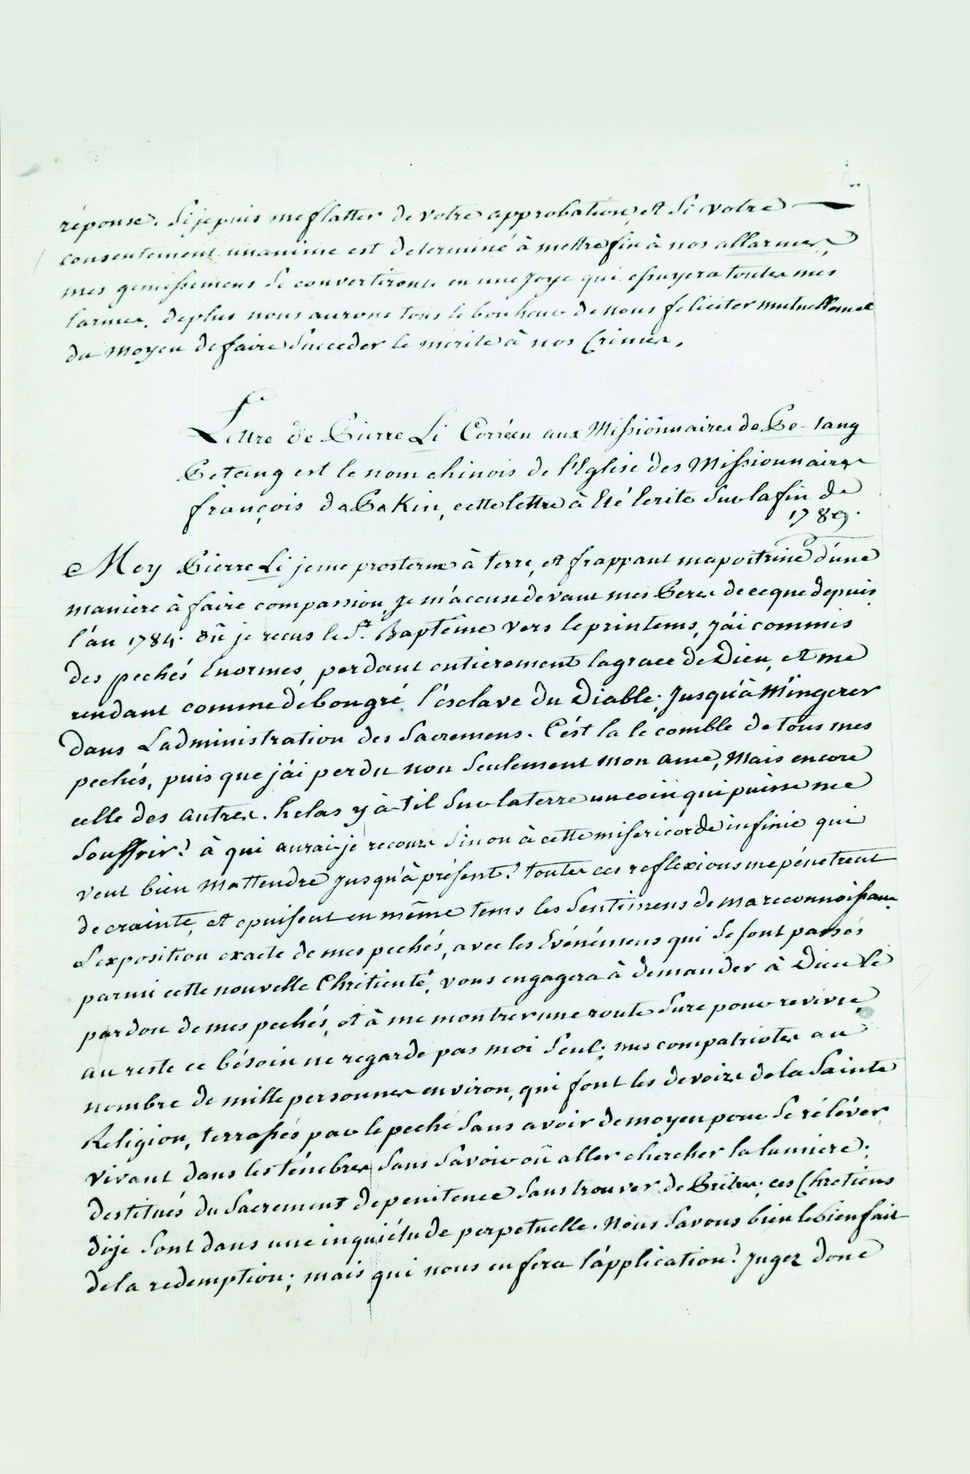 réponse. Si je puis me flatter de votre approbation, et si votre
consentement unanime est determiné à mettre fin à nos allarmes,
mes gemissemens se convertiront en une joye qui essuyera toutes mes
larmes. deplus nous aurons tous le bonheur de nous feliciter mutuellement
du moyen de faire succeder le merite à nos Crimes.
Lettre de Pierre Li Corréen aux Missionnaires de Pe-tang
Petang est le nom chinois de l'Eglise des Missionnaires
françois de Pekin, cette lettre à été écrite sur la fin de
1789.
Moy Pierre Li je me prosterne à terre, et frappant ma poitrine d'une
maniere à faire compassion, je m'accuse devant mes Peres de ce que depuis
l'an 1784. où je recus le St. Baptême vers le printems, j'ai commis
des pechés Enormes, perdant entierement la grace de Dieu, et me
rendant comme de bon gré l'esclave du Diable; jusqu'à M'ingerer
dans L'administration des Sacremens. C'est la le comble de tous mes
pechés, puis que j'ai perdu non seulement mon ame, mais encore
celle des autres. helas y à-t-il sur la terre un coin qui puisse me
souffrir? à qui aurai-je recours sinon à cette misericorde infinie qui
veut bien m'attendre jusqu'à présent? toutes ces reflexions me pénetrent
de crainte, et epuisent en même tems les sentimens de ma reconnoissance
L'exposition exacte de mes pechés, avec les Evénemens qui se sont passés
parmi cette nouvelle Chrétienté, vous engagera à demander à Dieu le
pardon de mes pechés, et à me montrer une route sure pour revivre,
au reste ce bésoin ne regarde pas moi seul; mes compatriotes au
nombre de mille personnes environ, qui font les devoirs de la Sainte
Religion, terrassés par le peché sans avoir de moyen pour se réléver
vivant dans les ténébres sans savoir où aller chercher la lumiere;
destitués du Sacrement de penitence sans trouver de Prêtre; ces Chretiens
dis je sont dans une inquiétude perpetuelle. Nous savons bien le bienfait
de la redemption; mais qui nous en fera l'application? jugez donc